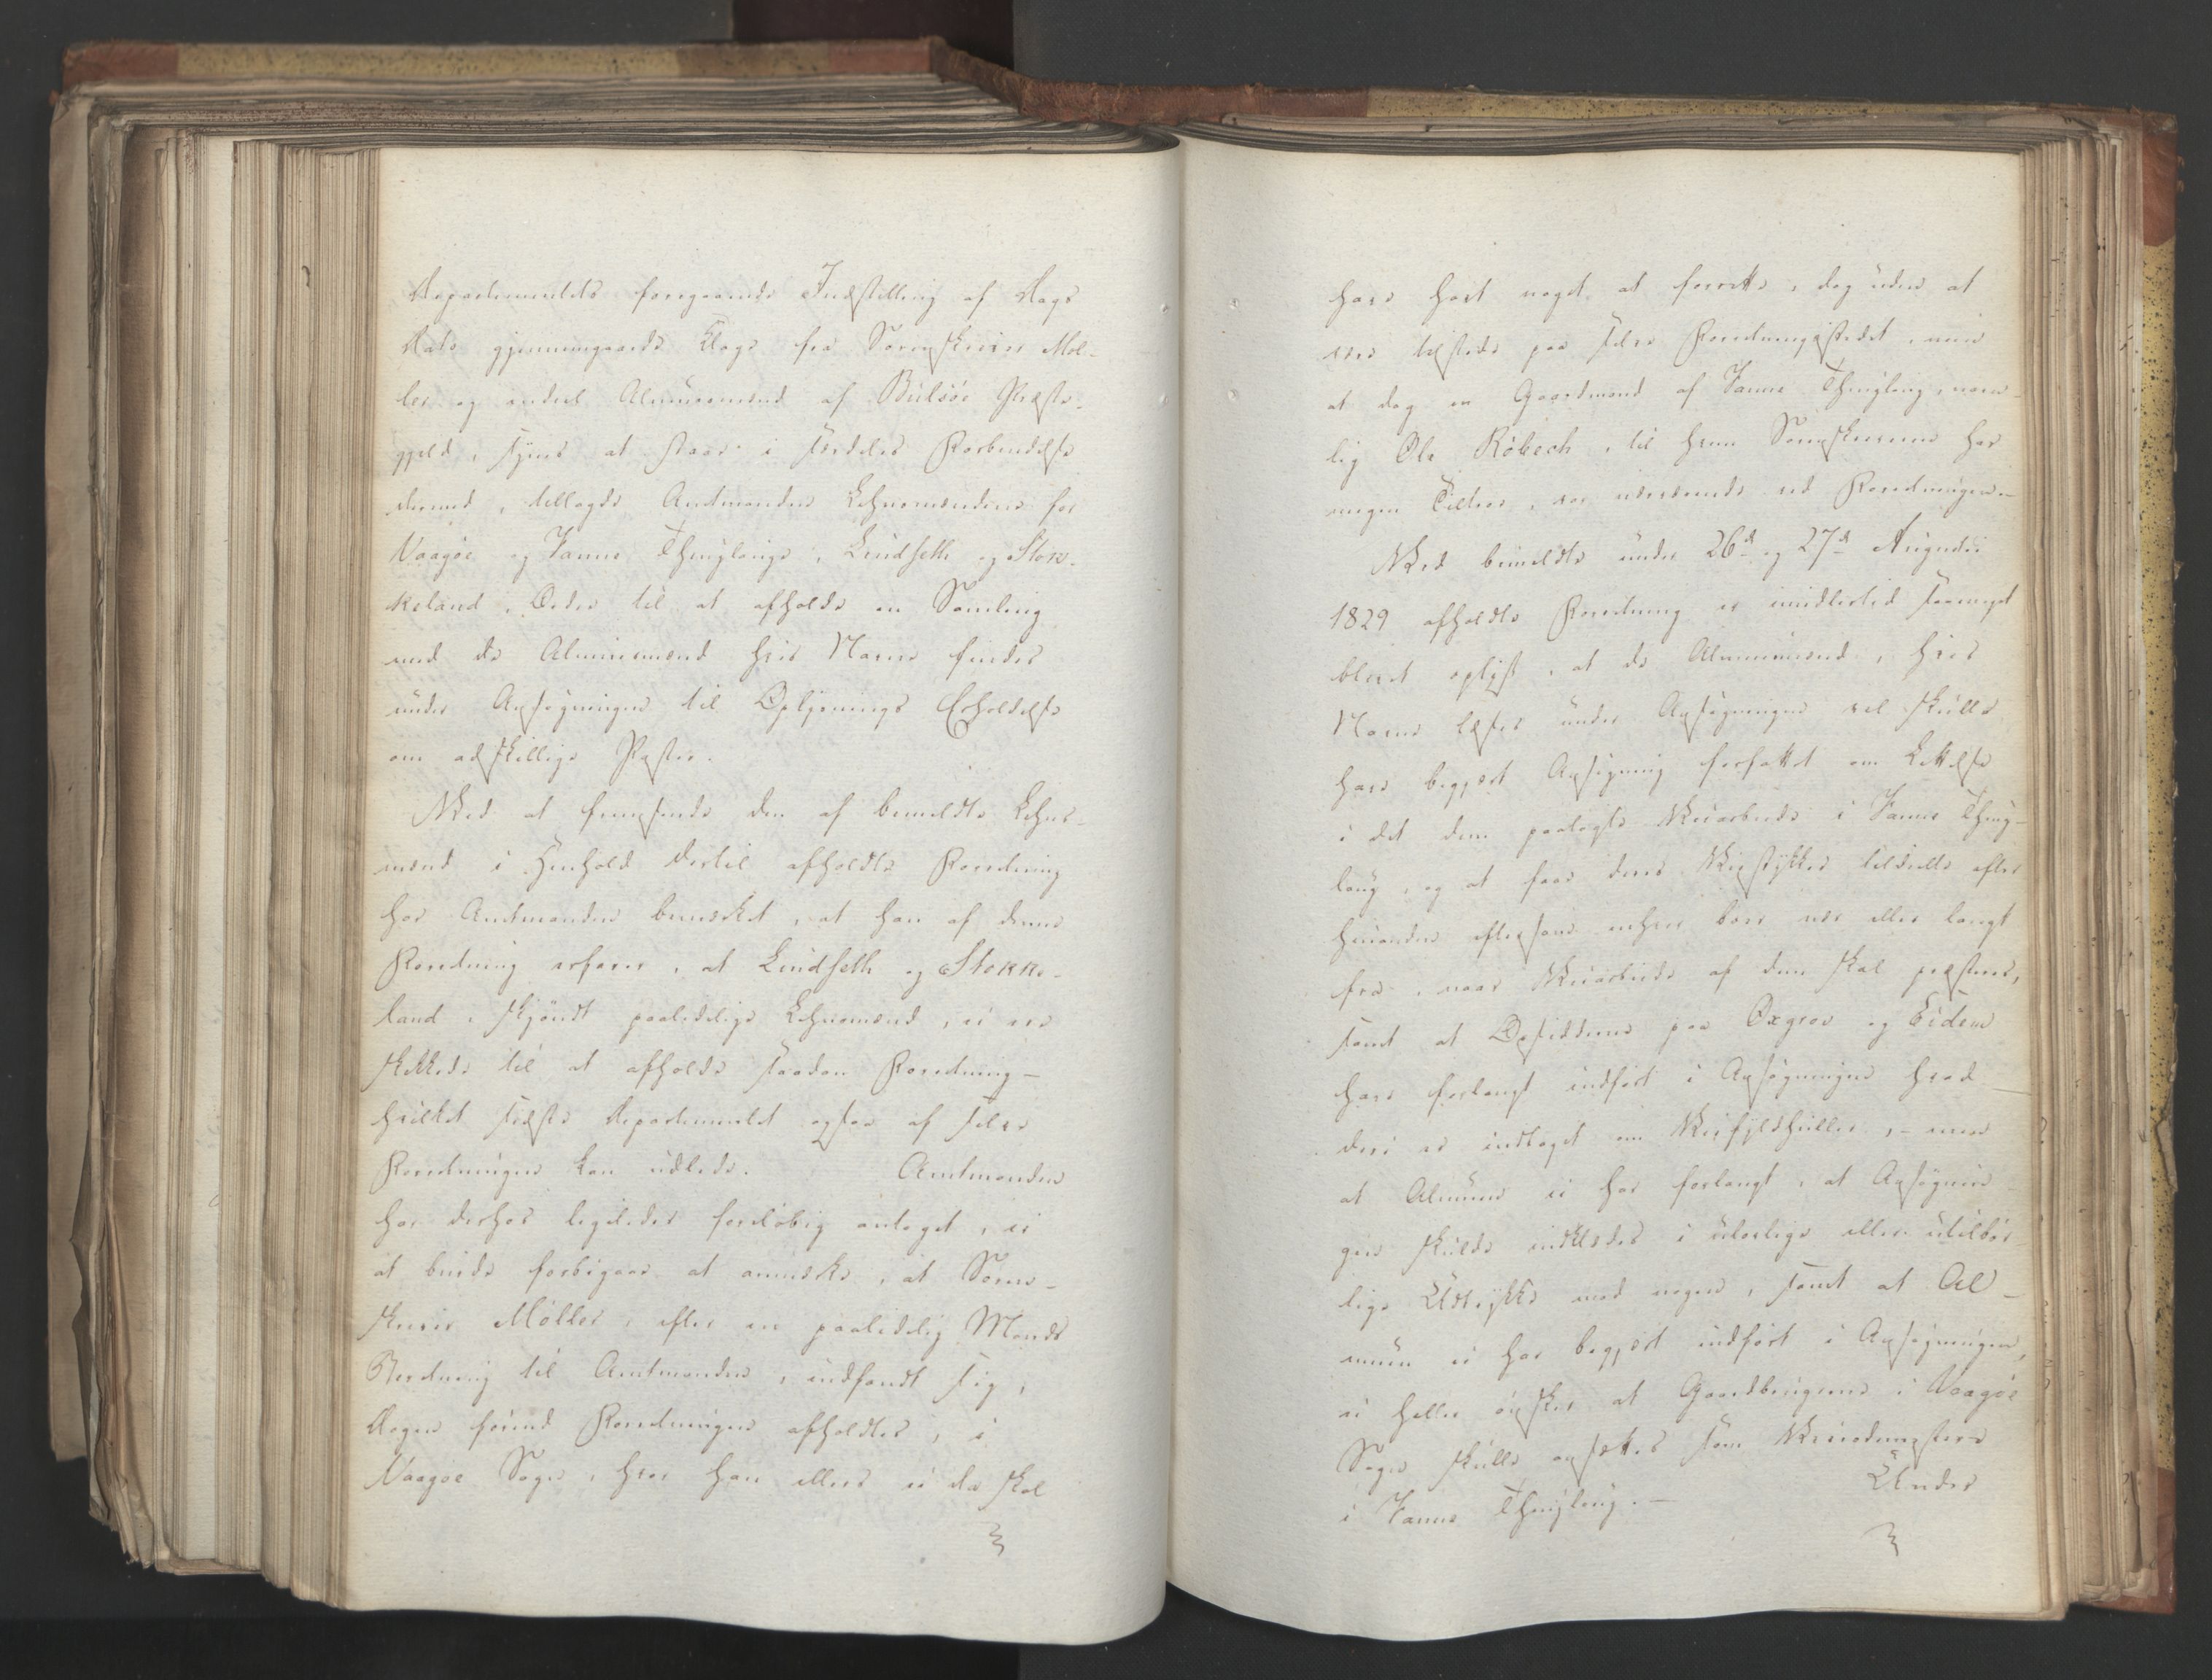 Departementets foregaaende Indstilling af Dags
Dato gjennemgaaede Klage fra Sorenskriver Møl-
ler og endeel Almuesmænd af Bulsöe Præste-
gjeld, synes at staae i særdeles Forbindelse
dermed, tillagde Amtmanden Lehnsmændene for
Vaagöe og Fanne Thinglauge, Lindseth og Stok-
keland, Ordre til at afholde en Samling
med de Almuesmænd hvis Navne findes
under Ansøgningen til Oplysnings Erholdelse
om adskillige Poster.
Ved at fremsende den af bemeldte Lehns-
mænd i Henhold dertil afholdte Forretning
har Amtmanden bemærket, at han af denne
Forretning erfarer, at Lindseth og Stokke-
land, skjöndt paalidelige Lehnsmænd, ei ere
skikkede til at afholde saadan Forretning –
hvilket sidste Departementet ogsaa af selve
Forretningen kan udlede. Amtmanden
har derhos ligeledes foreløbig antaget, ei
at burde forbigaae at anmærke, at Soren-
skriver Möller, efter en paalidelig Mands
Beretning til Amtmanden, indfandt sig,
Dagen förend Forretningen afholdtes, i
Vaagöe Sogn, hvor han ellers ei da skal
have havt noget at forrette, dog uden at
være tilstede paa selve Forretningsstedet, men
at dog en Gaardmand af Fanne Thinglaug, nem-
lig Ole Röbech, til hvem Sorenskriveren har
megen Tiltroe, var nærværende ved Forretningen.
Ved bemeldte under 26de og 27de Augusti
1829 afholdte Forretning er imidlertid saameget
blevet oplyst, at de Almuesmænd, hvis
Navne læses under Ansøgningen vel skulle
have begjært Ansøgning forfattet om Lettelse
i det dem paalagte Veiarbeide i Fanne Thing-
laug, og at faae deres Veistykker tildeelte efter
hinanden eftersom enhver boer nær eller langt
fra, naar Veiarbeide af dem skal præsteres,
samt at Opsidderne paa Oxgrov og Eidem
have forlangt indfört i Ansøgningen hvad
deri er indtaget om Veifyldhuller, – men
at Almuen ei har forlangt, at Ansøgnin-
gen skulde indklædes i ulovlige eller utilbör-
lige Udtrykke mod nogen, samt at Al-
muen ei har begjært indfört i Ansøgningen,
ei heller önsker at Gaardbrugerne i Vaagöe
Sogn skulle ansættes som Veirodemestere
i Fanne Thinglaug. – Under